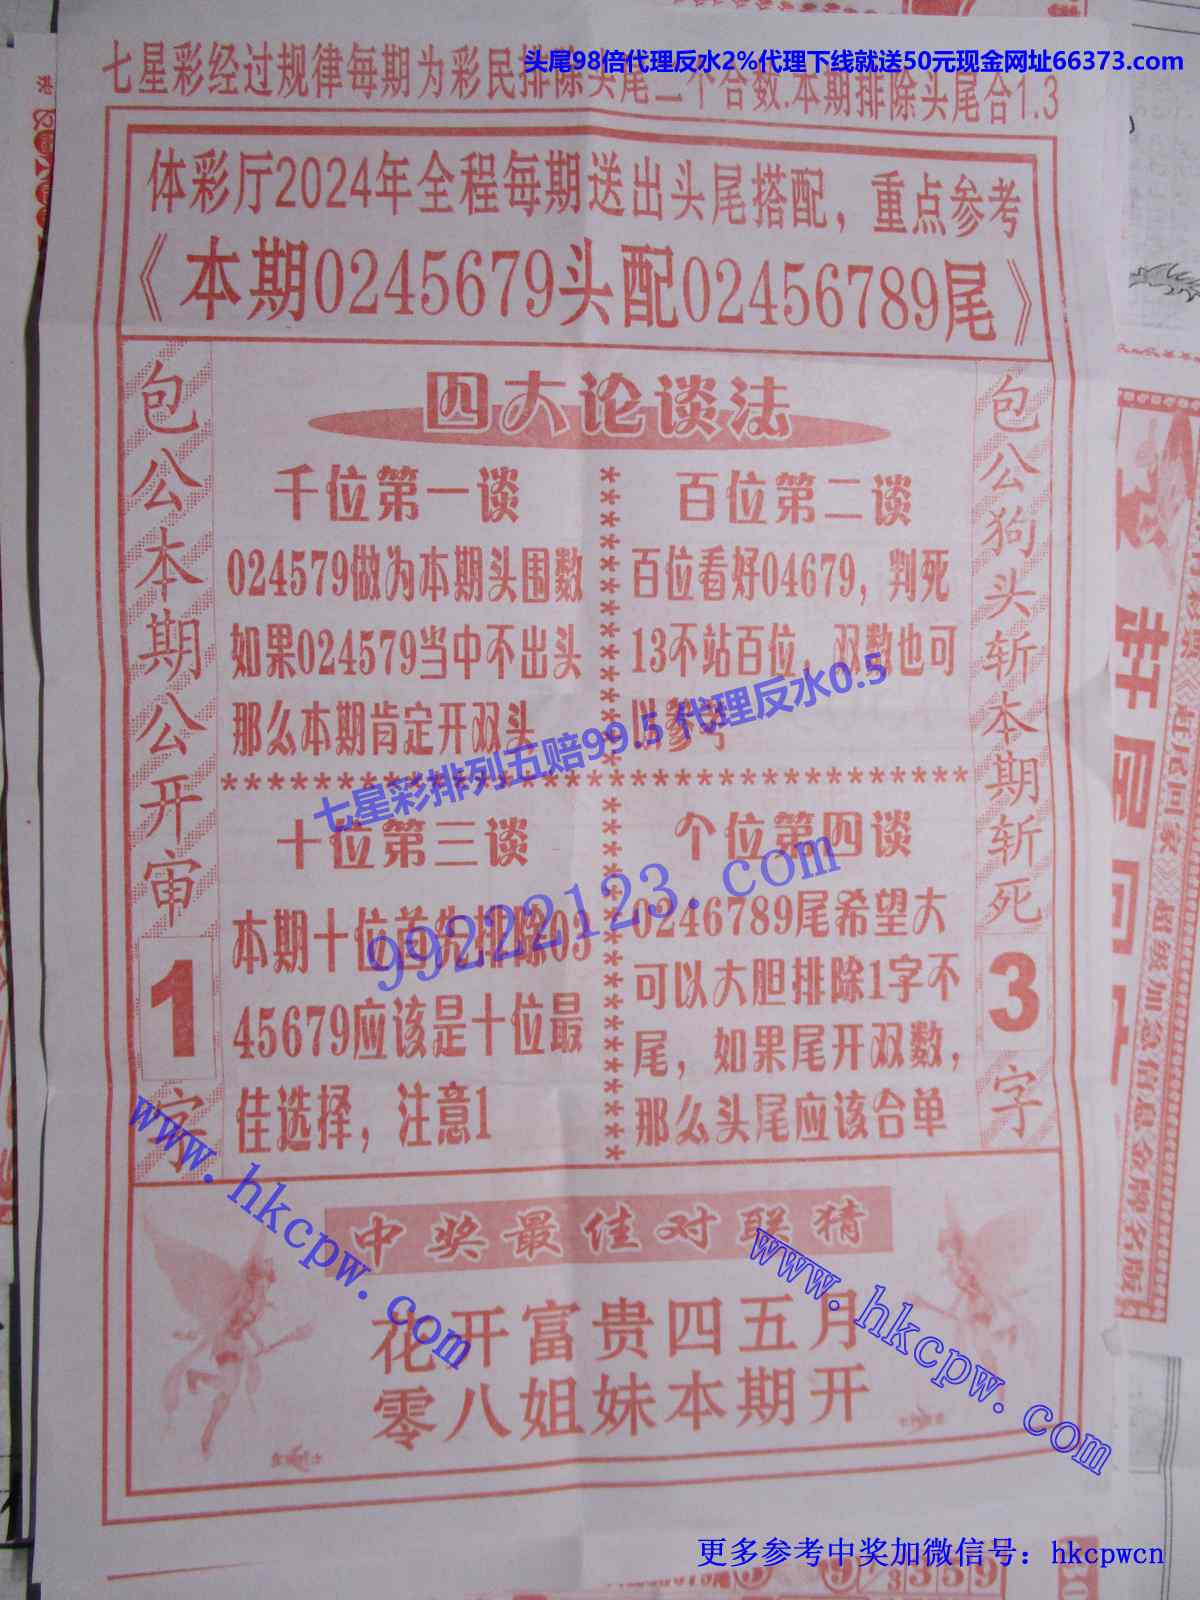 头尾98倍代理反水2%代理下线就送50元现金网址66373.com
七星彩经过规律每期为彩民排除头尾二个合数.本期排除头尾合1.3
体彩厅2024年全程每期送出头尾搭配，重点参考
《本期0245679头配02456789尾》
包公本期公开审
1
字
包公狗头斩本期斩死
3
字
四大论谈法
千位第一谈
024579做为本期头围数
如果024579当中不出头
那么本期肯定开双头
百位第二谈
百位看好04679，判死
13不站百位，双数也可
以参考
七星彩排列五赔99.5 代理反水0.5
99222123.com
十位第三谈
本期十位首先排除03
45679应该是十位最
佳选择，注意1
个位第四谈
0246789尾希望大
可以大胆排除1字不
尾，如果尾开双数，
那么头尾应该合单
www.hkcpw.com
www.hkcpw.com
中奖最佳对联猜
花开富贵四五月
零八姐妹本期开
更多参考中奖加微信号：hkcpwcn